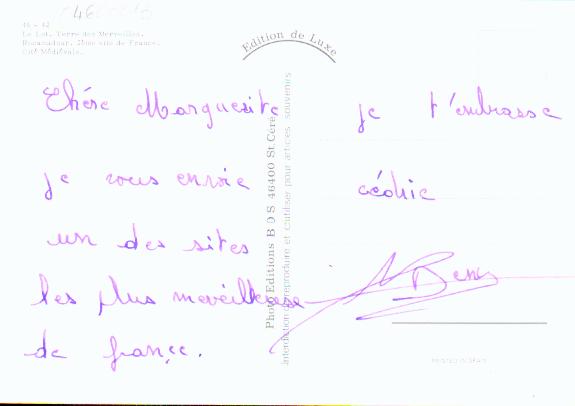 46 - 42
Le Lot. Terre des Merveilles.
Rocamadour. 2ème site de France.
Cité Médiévale.
Edition de Luxe
Photo Editions B O S 46400 St. Céré
Interdiction de reproduire et d'utiliser pour articles souvenirs
Chére Marguerite
je vous envoie
un des sites
les plus merveilleuse
de françe.
je t'embrasse
cédric